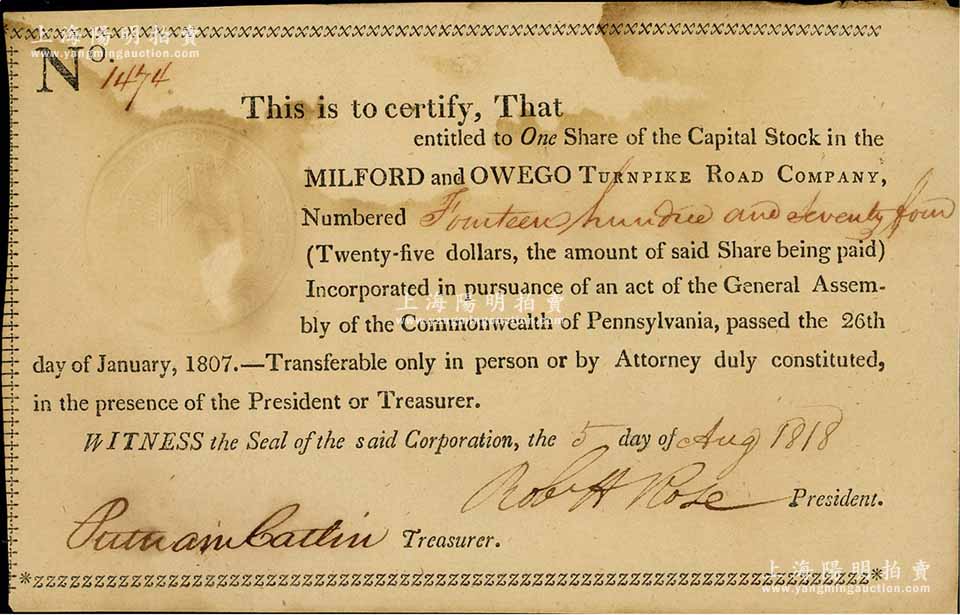 上海陽明拍賣
www.yangmingauction.com
No. 1474
This is to certify, That
entitled to One Share of the Capital Stock in the
MILFORD and OWEGO TURNPIKE ROAD COMPANY,
Numbered Fourteen hundred and seventy four
(Twenty-five dollars, the amount of said Share being paid)
Incorporated in pursuance of an act of the General Assem-
上海陽明拍賣
bly of the Commonwealth of Pennsylvania, passed the 26th
day of January, 1807.—Transferable only in person or by Attorney duly constituted,
in the presence of the President or Treasurer.
WITNESS the Seal of the said Corporation, the 5 day of Aug 1818
Rob. H Rose President.
Putnam Catlin Treasurer.
上海陽明拍賣
www.yangmingauction.com